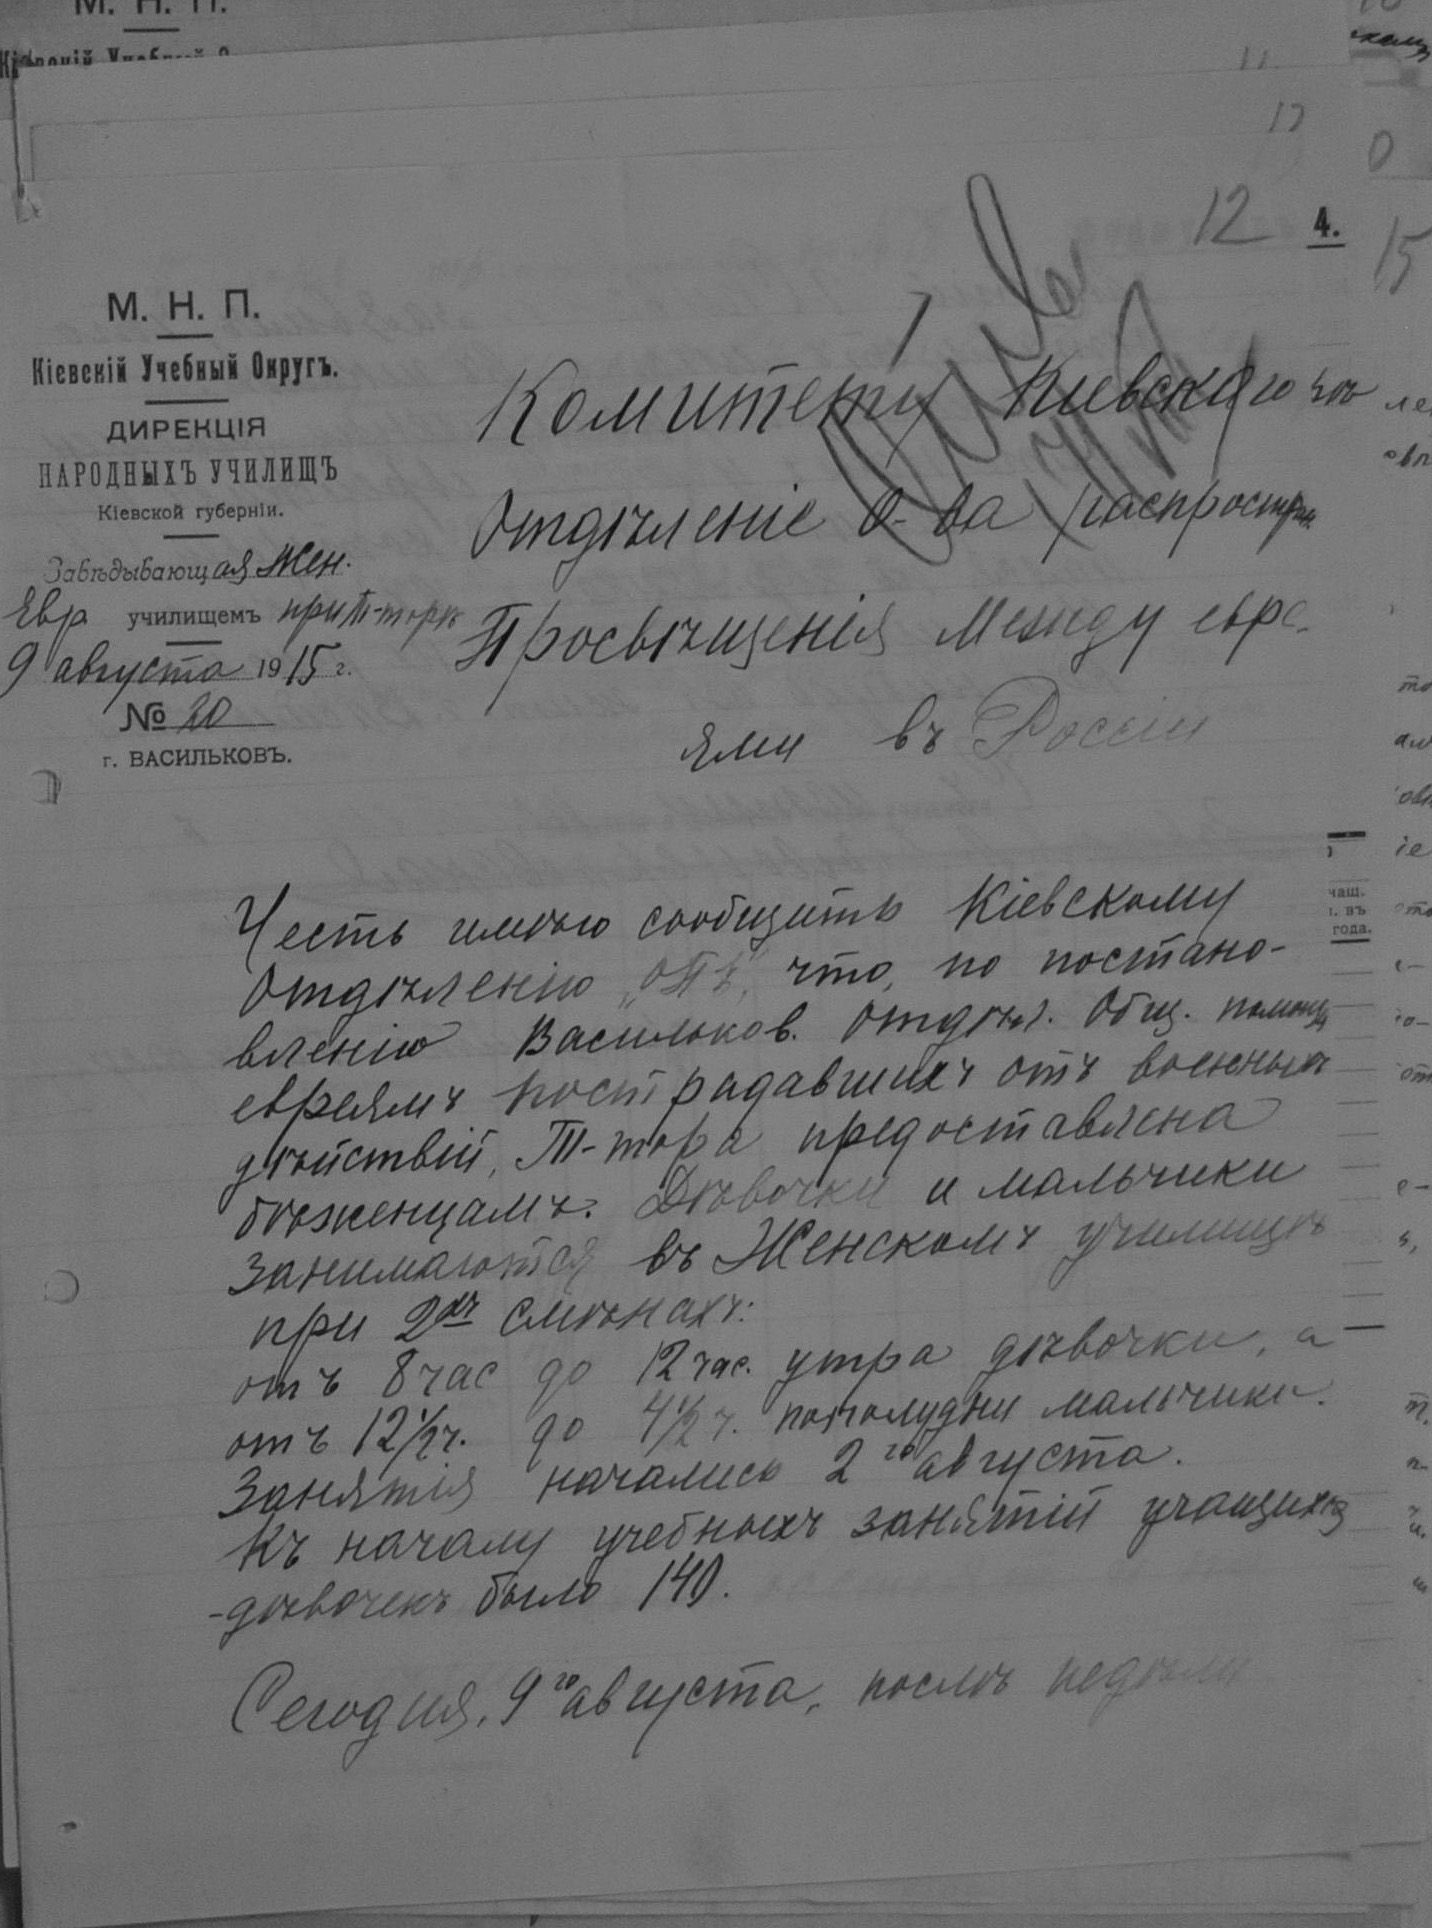 12
4.
М. Н. П.
Кіевскій Учебный Округъ.
ДИРЕКЦІЯ
НАРОДНЫХЪ УЧИЛИЩЪ
Кіевской губерніи.
Завѣдывающая Жен.
Евр училищемъ при Т-торѣ
9 августа 1915 г.
№ 20
г. ВАСИЛЬКОВЪ.
Комитету Кіевскаго
Отдѣленіе О-ва распростран.
Просвѣщенія между евре-
ями въ Россіи
Честь имѣю сообщить Кіевскому
Отдѣленію „ОПЕ", что, по постано-
вленію Васильков. Отдѣл. Общ. помощи
евреямъ пострадавшихъ отъ военныхъ
дѣйствій, Т-тора предоставлена
бѣженцамъ. Дѣвочки и мальчики
занимаются въ Женскомъ училищѣ
при 2хъ смѣнахъ:
отъ 8 час до 12 час. утра дѣвочки, а
отъ 12 1/2 ч. до 4 1/2 ч. пополудни мальчики.
Занятія начались 2го августа.
Къ началу учебныхъ занятій учащихся
-дѣвочекъ было 140.
Сегодня, 9го августа, послѣ недѣли